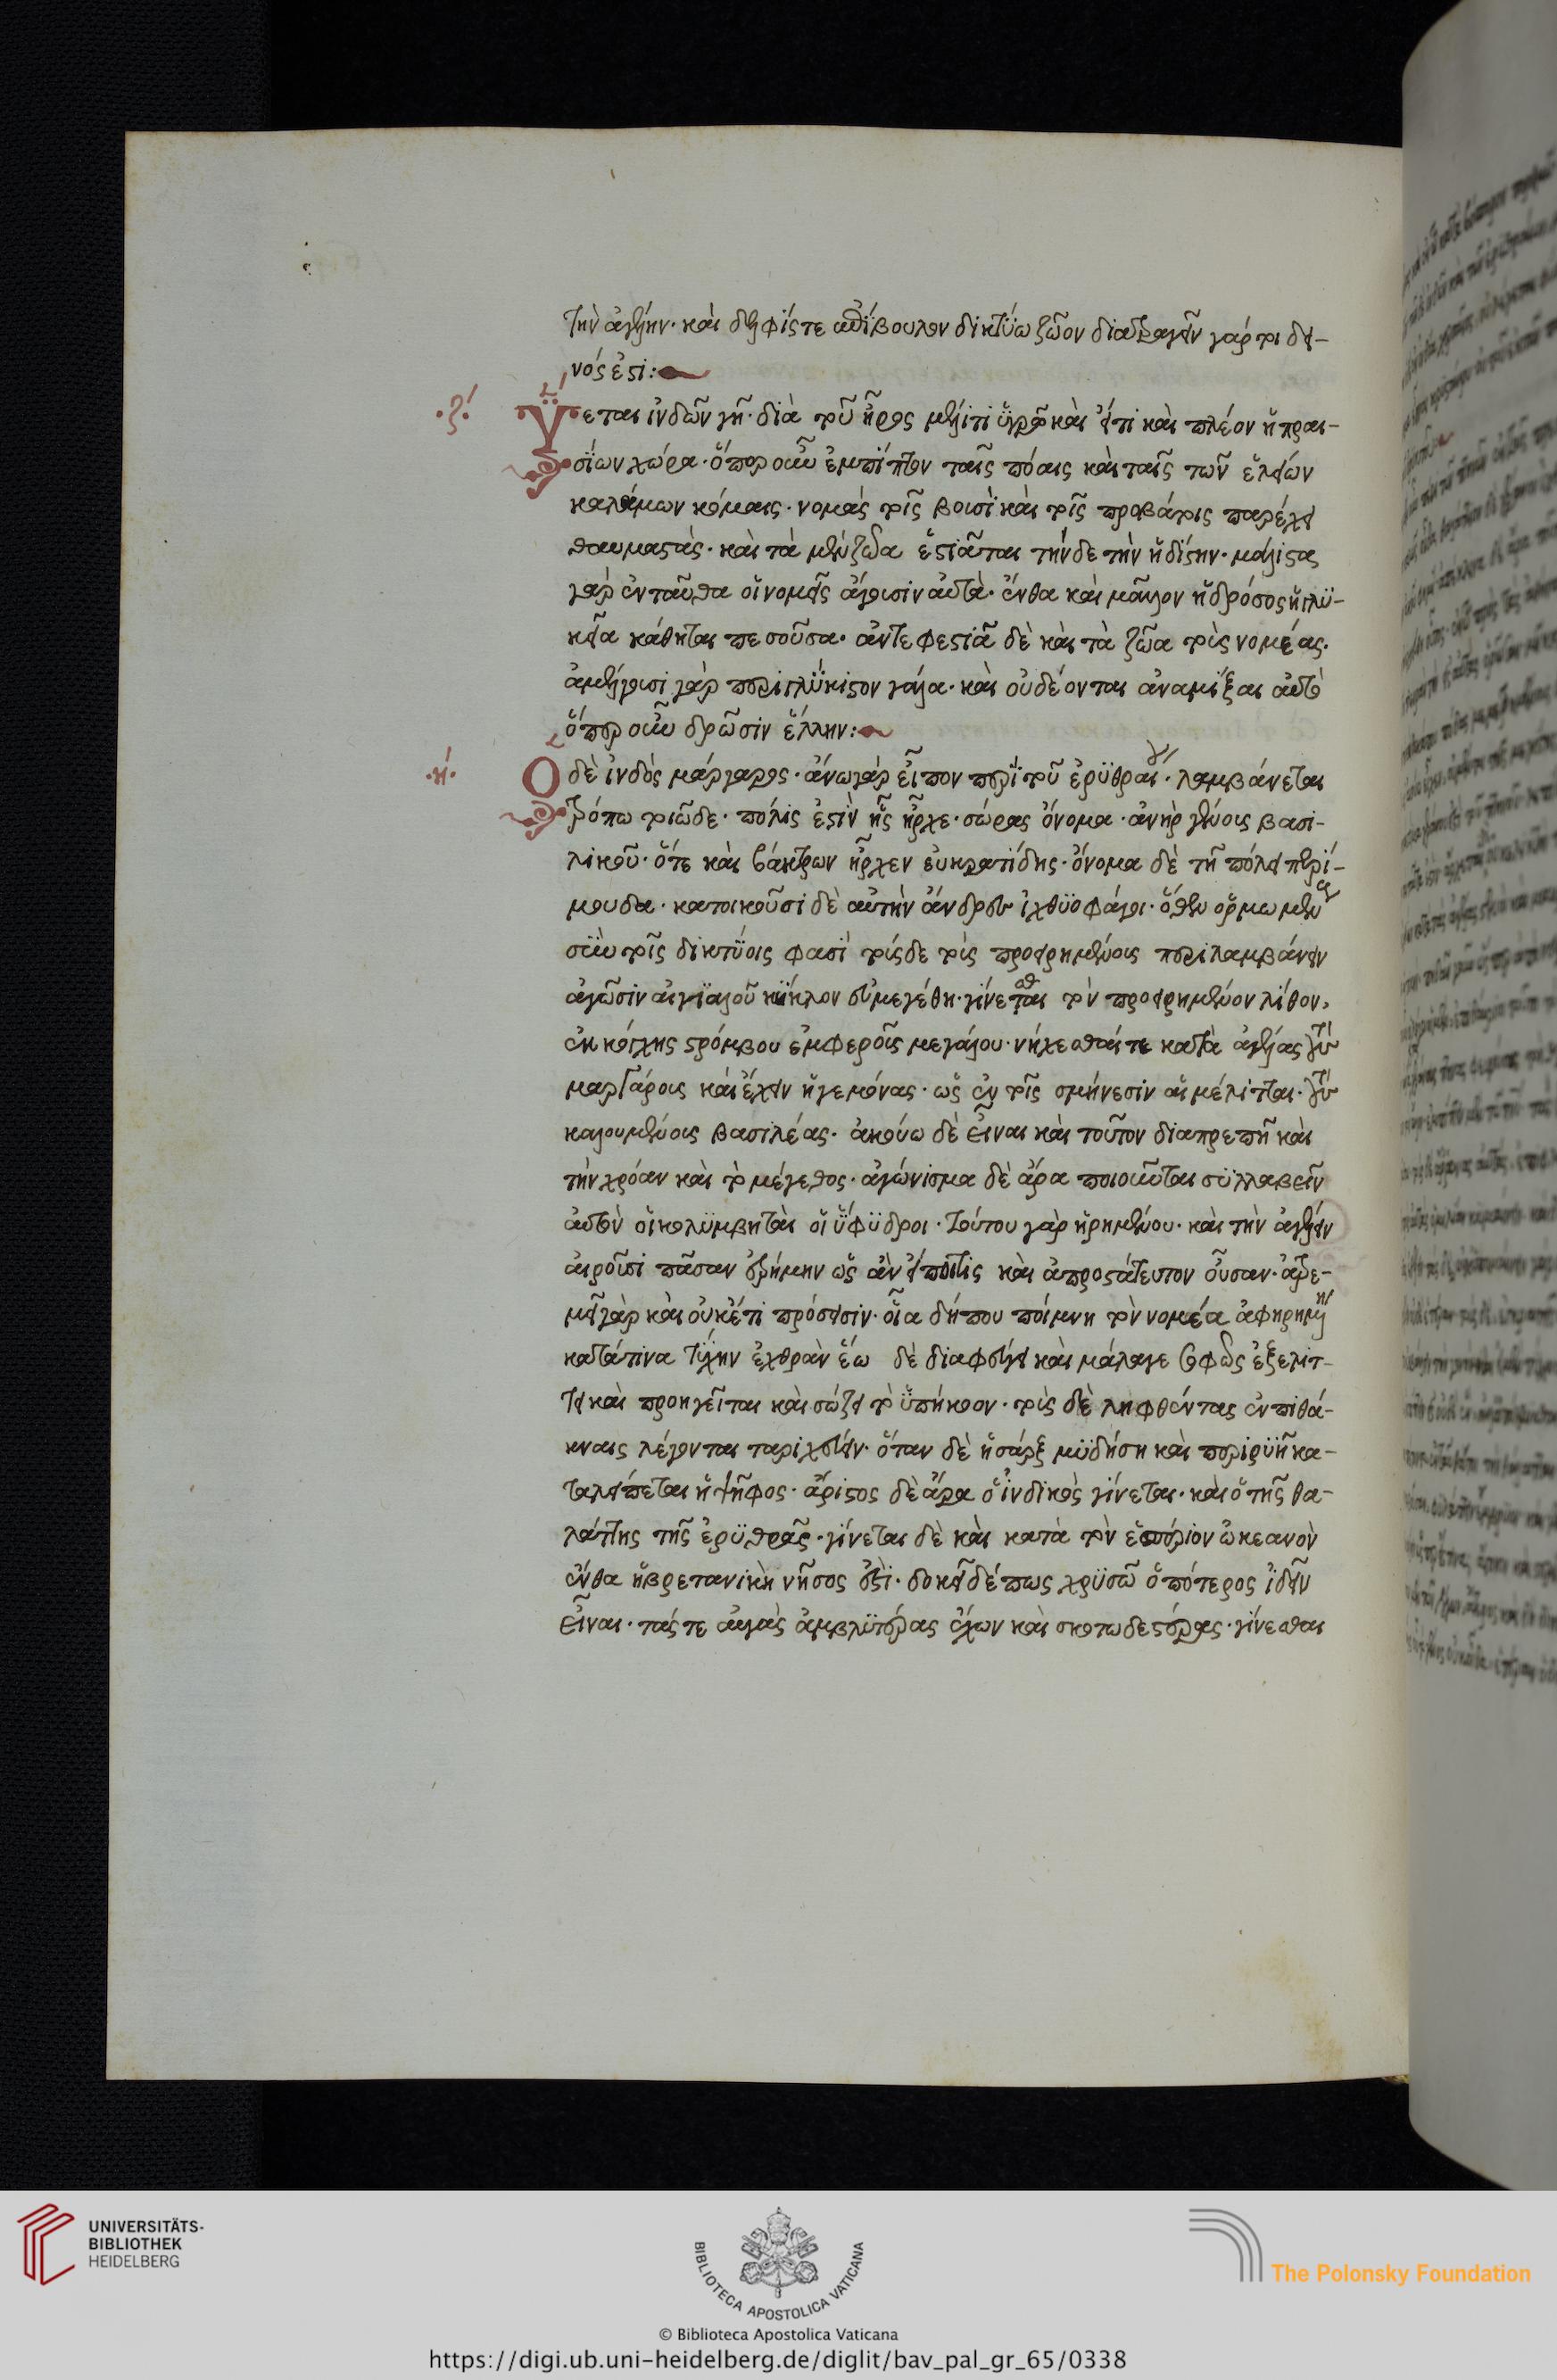 τὴν ἀγέλην· καὶ δελφίς τε ἐπίβουλον δικτύω ζῶον διατραγεῖν γάρ τι δει-
νός ἐστι:
·ζ· Ὕεται ἰνδῶν γῆ· διὰ τοῦ ἦρος μέλιτι ὑγρῶ καὶ ἔτι καὶ πλέον ἡ πραι-
σίων χώρα· ὅπερ οὖν ἐμπίπτον ταῖς πόαις καὶ ταῖς τῶν ἑλείων
καλάμων κόμαις· νομὰς τοῖς βουσὶ καὶ τοῖς προβάτοις παρέχει
θαυμαστὰς· καὶ τὰ μὲν ζῶα ἑστιᾶται τήνδε τὴν ἡδίστην· μάλιστα
γὰρ ἐνταῦθα οἱ νομεῖς ἄγουσιν αὐτὰ· ἔνθα καὶ μᾶλλον ἡ δρόσος ἡ γλυ-
κεῖα κάθηται πεσοῦσα· ἀντεφεστιᾶ δὲ καὶ τὰ ζῶα τοὺς νομέας·
ἀμέλγουσι γὰρ περιγλύκιστον γάλα· καὶ οὐ δέονται ἀναμίξαι αὐτῶ
ὅπερ οὖν δρῶσιν ἕλλην:
·η· Ὁ δὲ ἰνδὸς μάργαρος· ἄνω γάρ εἶπον περὶ τοῦ ἐρυθραίου· λαμβάνεται
τρόπω τοιῶδε· πόλις ἐστὶν ἧς ἦρχε· σώρας ὄνομα· ἀνὴρ γένους βασι-
λικοῦ· ὅτε καὶ βάκτρων ἦρχεν εὐκρατίδης· ὄνομα δὲ τῆ πόλει περί-
μουδα· κατοικοῦσι δὲ αὐτὴν ἄνδρες ἰχθυοφάγοι· ὅθεν ὁρμωμένους
σὺν τοῖς δικτύοις φασὶ τοῖσδε τοῖς προειρημένοις περιλαμβάνειν
ἀγῶσιν αἰγιαλοῦ κύκλον εὐμεγέθη· γίνεσθαι τὸν προειρημένον λίθον,
ἐκ κόχλης στρόμβου ἐμφεροῦς μεγάλου· νήχεσθαί τε κατὰ ἀγέλας τοὺς
μαργάρους καὶ ἔχειν ἡγεμόνας· ὡς ἐν τοῖς σμήνεσιν αἱ μέλιτται· τοὺς
καλουμένους βασιλέας· ἀκούω δὲ εἶναι καὶ τοῦτον διαπρεπῆ καὶ
τὴν χρόαν καὶ τὸ μέγεθος· ἀγώνισμα δὲ ἄρα ποιοῦνται συλλαβεῖν
αὐτὸν οἱ κολυμβηταὶ οἱ ὕφυδροι· τούτου γὰρ ἡρημένου· καὶ τὴν ἀγέλην
αἱροῦσι πᾶσαν ἐρήμην ὡς ἂν εἴποι τις καὶ ἀπροστάτευτον οὖσαν· ἀτρε-
μεῖ γὰρ καὶ οὐκέτι πρόσεισιν· οἷα δήπου ποίμνη τὸν νομέα ἀφηρημένη
κατά τινα τύχην ἐχθρὰν ἕω δὲ διαφεύγει καὶ μάλα γε σοφῶς ἐξελίτ-
τει καὶ προηγεῖται καὶ σώζει τὸ ὑπήκοον· τοὺς δὲ ληφθέντας ἐν πιθά-
κναις λέγονται ταριχεύειν· ὅταν δὲ ἡ σάρξ μυδήση καὶ περιρυῆ κα-
ταλείπεται ἡ ψῆφος· ἄριστος δὲ ἄρα ὁ ἰνδικὸς γίνεται· καὶ ὁ τῆς θα-
λάττης τῆς ἐρυθρᾶς· γίνεται δὲ καὶ κατὰ τὸν ἑσπέριον ὠκεανὸν
ἔνθα ἡ βρετανικὴ νῆσος ἐστὶ· δοκεῖ δέ πως χρυσῶ ὁπότερος ἰδεῖν
εἶναι· τάς τε αὐγὰς ἀμβλυτέρας ἔχων καὶ σκοτωδεστέρας· γίνεσθαι
UNIVERSITÄTS-
BIBLIOTHEK
HEIDELBERG
BIBLIOTECA APOSTOLICA VATICANA
The Polonsky Foundation
© Biblioteca Apostolica Vaticana
https://digi.ub.uni-heidelberg.de/diglit/bav_pal_gr_65/0338